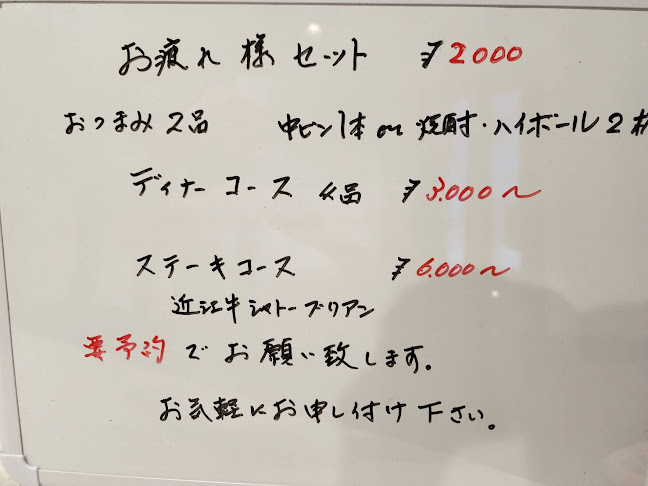 お疲れ様セット ¥2000
おつまみ2品 中ビン1本 or 焼酎・ハイボール2杯
ディナーコース 4品 ¥3.000〜
ステーキコース ¥6.000〜
近江牛シャトーブリアン
要予約でお願い致します。
お気軽にお申し付け下さい。